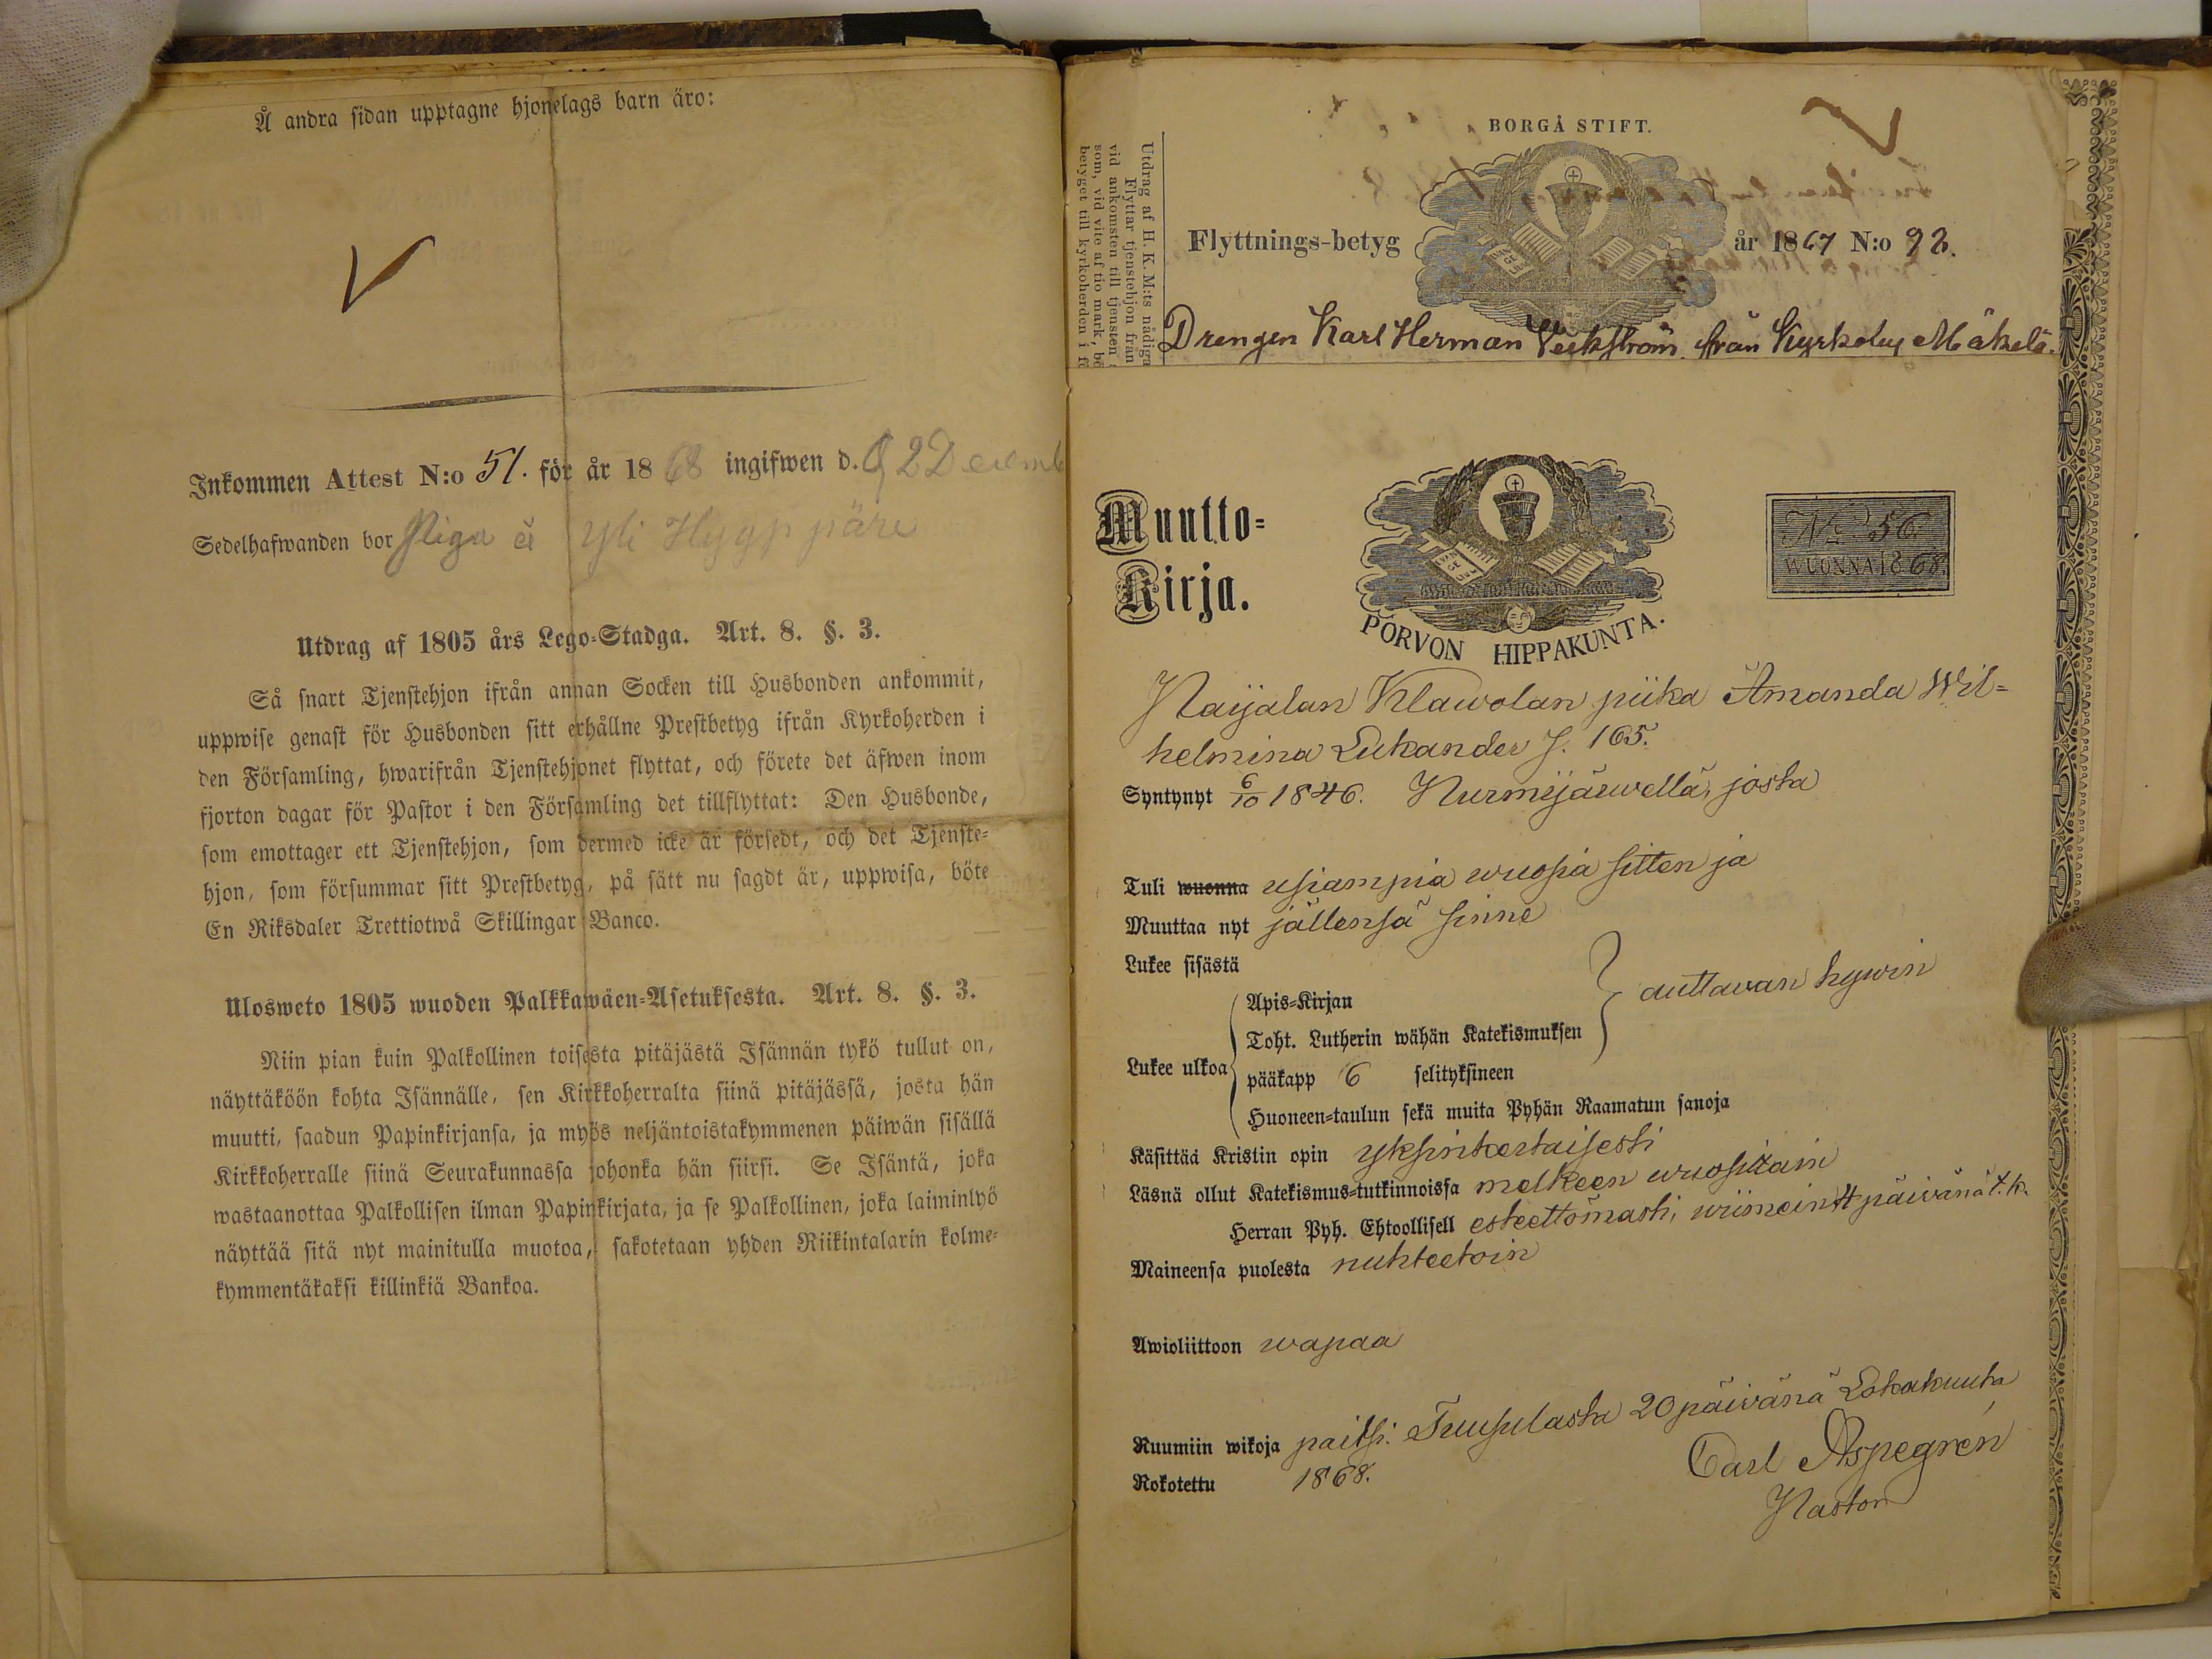 Å andra sidan upptagne hjonelags barn äro:
Inkommen Attest N:o 51. för år 1868 ingifwen d. 2 Decemb
Sedelhafwanden bor Piga å Yli Hyppäre
Utdrag af 1805 års Lego-Stadga. Art. 8. §. 3.
Så snart Tjenstehjon ifrån annan Socken till Husbonden ankommit,
uppwise genast för Husbonden sitt erhållne Prestbetyg ifrån Kyrkoherden i
den Församling, hwarifrån Tjenstehjonet flyttat, och förete det äfwen inom
fjorton dagar för Pastor i den Församling det tillflyttat: Den Husbonde,
som emottager ett Tjenstehjon, som dermed icke är försedt, och det Tjenste-
hjon, som försummar sitt Prestbetyg, på sätt nu sagdt är, uppwisa, böte
En Riksdaler Trettiotwå Skillingar Banco.
Ulosweto 1805 wuoden Palkkawäen-Asetuksesta. Art. 8. §. 3.
Niin pian kuin Palkollinen toisesta pitäjästä Isännän tykö tullut on,
näyttäköön kohta Isännälle, sen Kirkkoherralta siinä pitäjässä, josta hän
muutti, saadun Papinkirjansa, ja myös neljäntoistakymmenen päiwän sisällä
Kirkkoherralle siinä Seurakunnassa johonka hän siirsi. Se Isäntä, joka
wastaanottaa Palkollisen ilman Papinkirjata, ja se Palkollinen, joka laiminlyö
näyttää sitä nyt mainitulla muotoa, sakotetaan yhden Riikintalarin kolme-
kymmentäkaksi killinkiä Bankoa.
BORGÅ STIFT.
Utdrag af H. K. M:ts nådiga
Flyttar tjenstehjon från
vid ankomsten till tjensten
som, vid vite af tio mark, bö
betyget till kyrkoherden i fö
Flyttnings-betyg år 1867 N:o 92.
Drengen Karl Herman Veckström från Kyrkoby Mäkelä.
Muutto-
Kirja.
PORVON HIPPAKUNTA.
No 56
WUONNA 1868.
Paijalan Klawolan piika Amanda Wil-
helmina Lukander s. 165.
Syntynyt 6/10 1846. Nurmijärwellä, josta
Tuli wuonna usiampia wuosia sitten ja
Muuttaa nyt jällensä sinne
Lukee sisästä
Apis-Kirjan
auttawan hywin
Toht. Lutherin wähän Katekismuksen
Lukee ulkoa
pääkapp 6 selityksineen
Huoneen-taulun sekä muita Pyhän Raamatun sanoja
Käsittää Kristin opin yksinkertaisesti
Läsnä ollut Katekismus-tutkinnoissa melkeen wuosittain
Herran Pyh. Ehtoollisell esteettömästi, wiimein 4 päivänä t.k.
Maineensa puolesta nuhteetoin
Awioliittoon wapaa
Ruumiin wikoja paitsi. Tuusulasta 20 päivänä Lokakuuta
Rokotettu 1868.
Carl Aspegren
Pastor